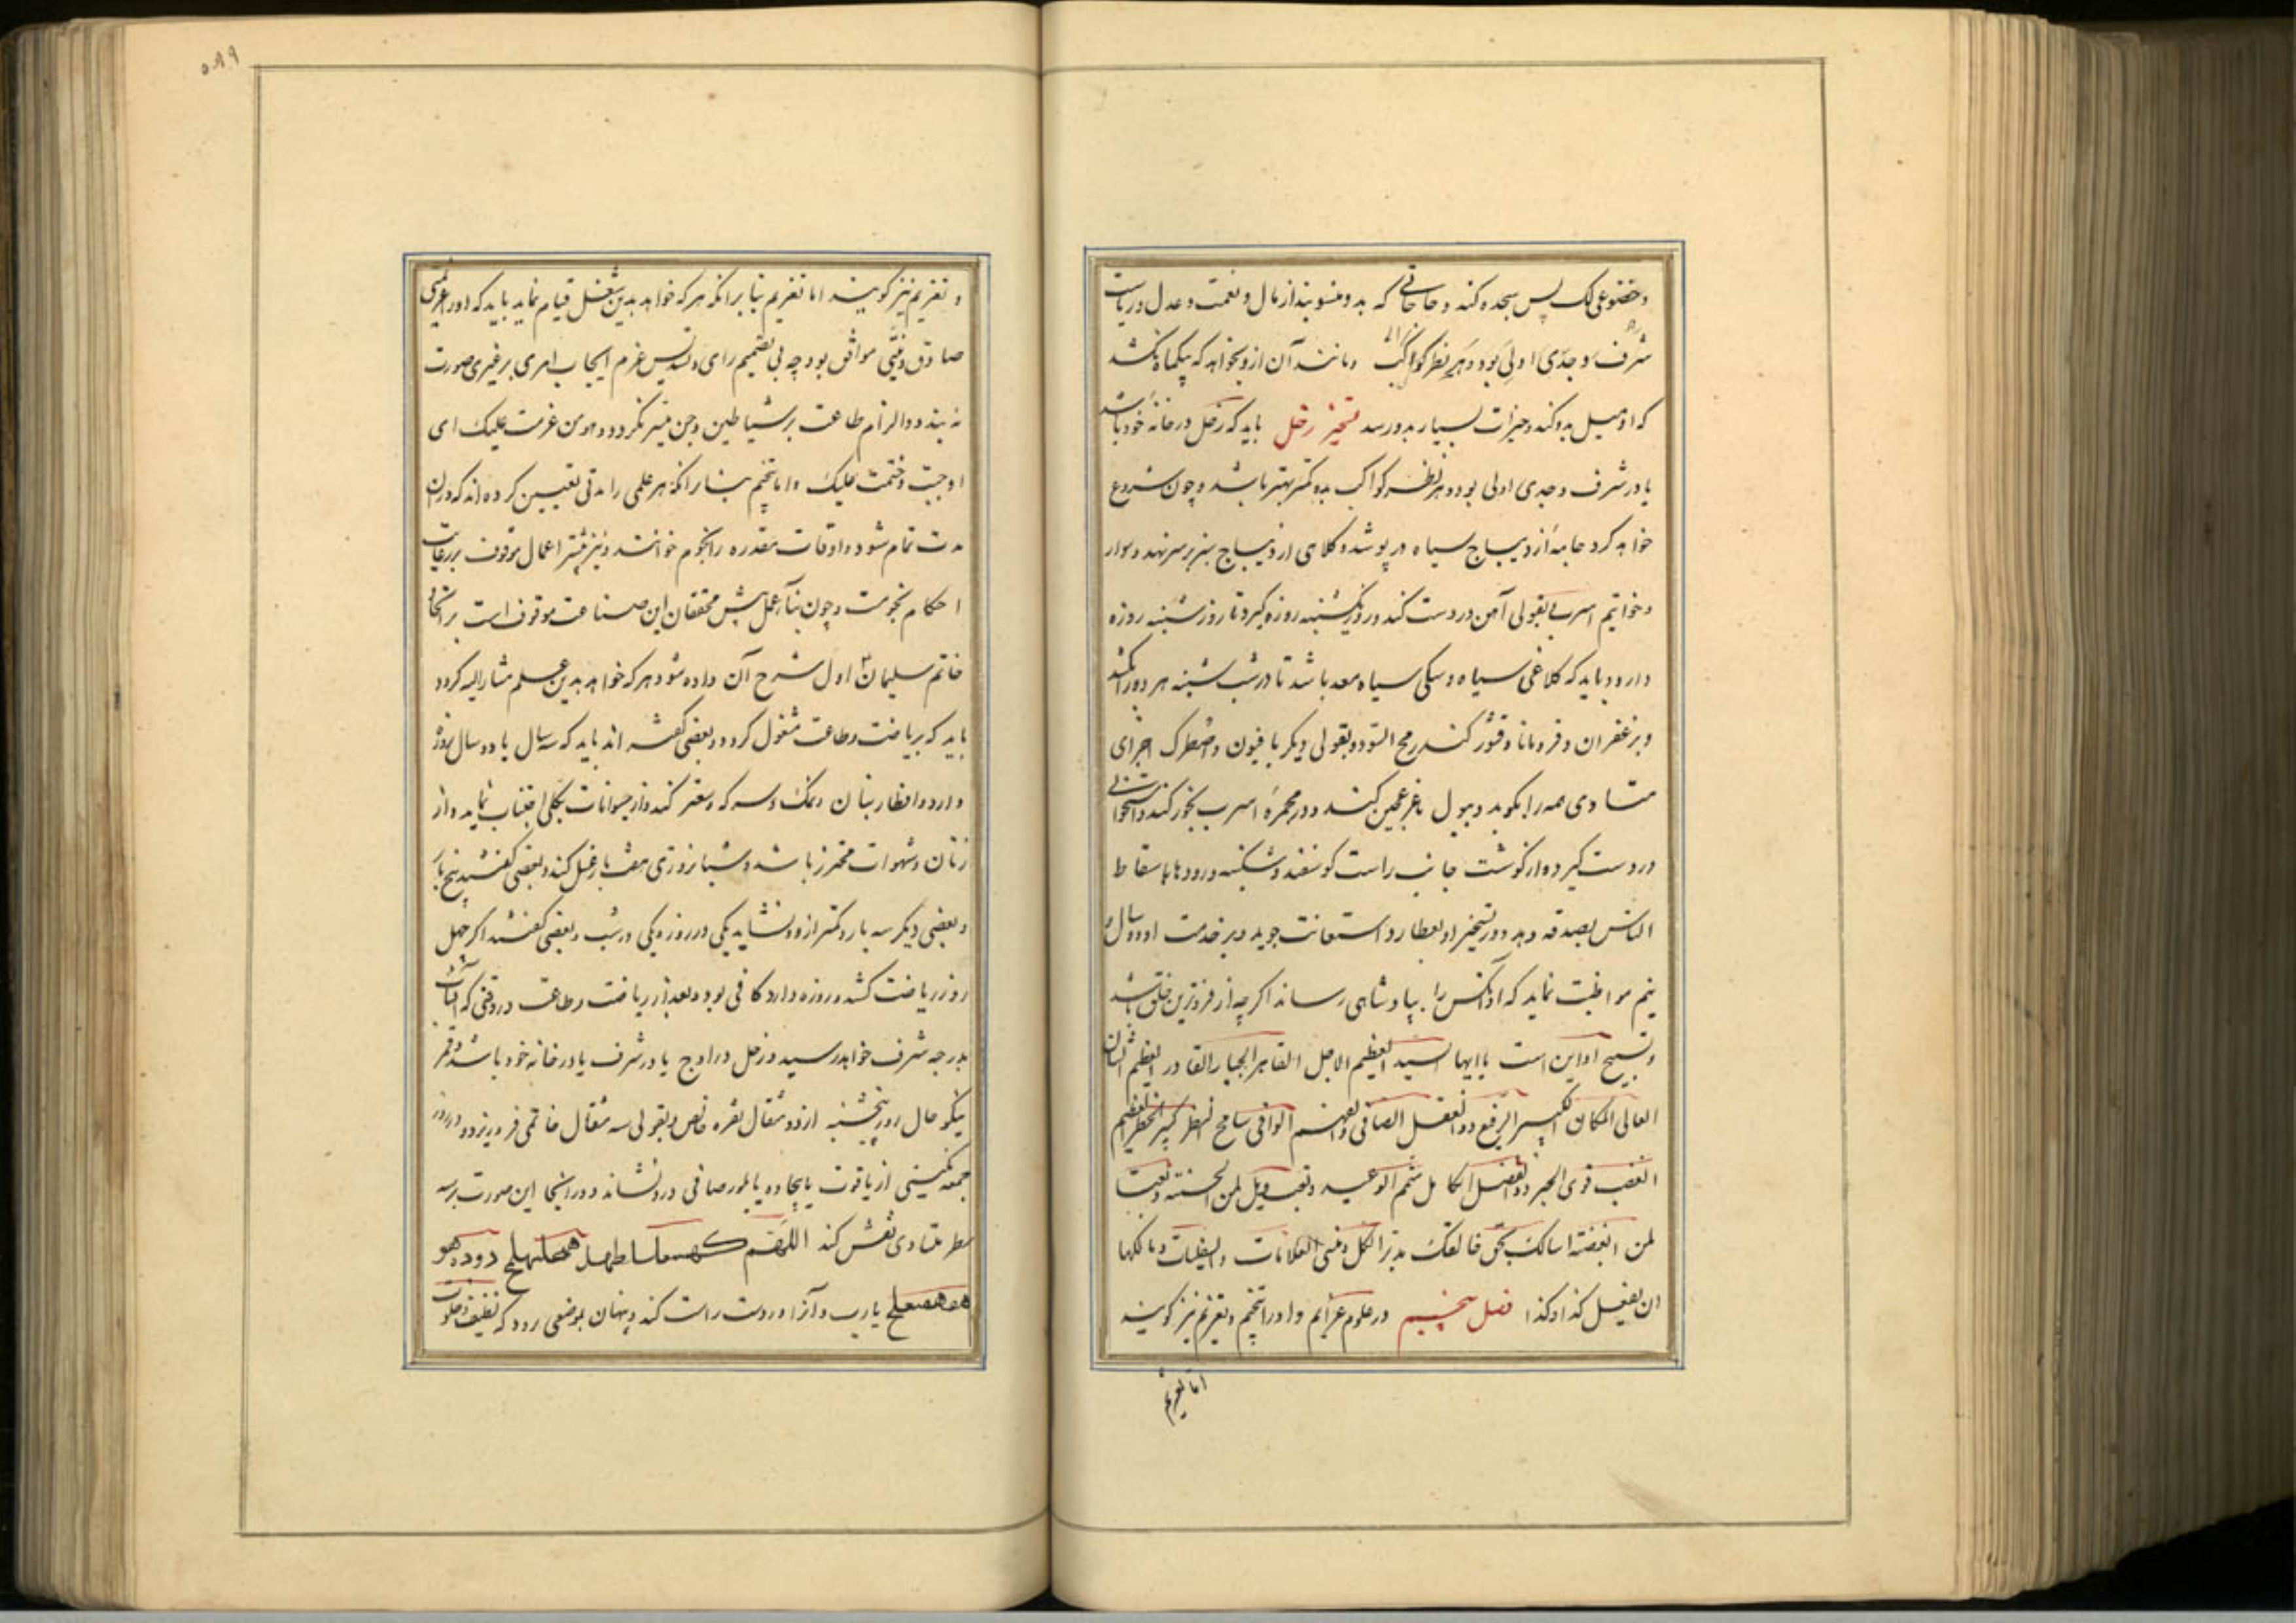 و خضوعی لک پس سجده کند و حاجاتی که بدو منسوبند از مال و نعمت و عدل و ریاست
شرف و جدی اولی بود و هر نظر کواکب و مانند آن ازو بخواهد که یکماه نکشد
که او میل بدو کند و خیرات بسیار بدو رسد تسخیر زحل باید که زحل در خانهٔ خود باشد
یا در شرف و جدی اولی بود و هر نظر کواکب بدو کمتر بهتر باشد و چون شروع
خواهد کرد جامهٔ از دیباج سیاه درپوشد و کلاهی از دیباج سبز بر سر نهد و سوار
و خواتیم اسرب بقولی آهن در دست کند و روز یکشنبه روزه گیرد تا روز شنبه روزه
دارد و باید که کلاغی سیاه و سکی سیاه معد باشد تا در شب شنبه هر دو را بکشد
و بزعفران و قردمانا و قشور کندر مح السود و بقولی دیگر با افیون و اصطرک اجزای
متساوی همه را بکوبد و ببول عجین کند و در مجمرهٔ اسرب بخور کند و استخوانی
در دست گیرد و از گوشت جانب راست گوسفند و شکنبه و رودها باسقاط
الناس بصدقه دهد و در تسخیر او بعطارد استعانت جوید و بر خدمت او دو سال و
نیم مواظبت نماید که او آنکس را بپادشاهی رساند اگر چه از فروترین خلق باشد
و تسبیح او این است یا ایها السید العظیم الاجل القاهر الجبار القادر العظیم الشان
العالی المکان الکبیر الرفیع ذو العقل الصافی و الفهم الوافی سامح النظر کبیر الخطر العظیم
الغضب قوی الحبر ذو الفضل الکامل متمم الوعید و تعب ویل لمن الحسنته و تعبا
لمن ابغضته اسالک بحق خالقک مدبر الکل و منشی العلانات و السفلیات و مالکها
ان یفعل کذا و کذا فصل پنجم در علوم عزایم و او را تنجیم و تعزیم نیز گویند
اما تعزیم
۵۸۹
و تعزیم نیز گویند اما تعزیم بنا برآنکه هر که خواهد بدین شغل قیام نماید باید که او را عزیمتی
صادق و نیتی موافق بود چه بی تصمیم رای و تسدیس عزم ایجاب امری بر غیری صورت
نه بندد و الزام طاعت بر شیاطین و جن میسر نگردد و هو من عزمت علیک ای
اوجبت و ختمت علیک و اما تنجیم بنا برآنکه هر علمی را مدتی تعیین کرده اند که در آن
مدت تمام شود و اوقات مقدره را نجوم خوانند و نیز بیشتر اعمال موقوف برعایت
احکام نجومست و چون بنای عمل پیش محققان این صناعت موقوف است بر اتخاذ
خاتم سلیمان اول شرح آن داده شود هر که خواهد بدین علم مشار الیه گردد
باید که بریاضت و طاعت مشغول گردد و بعضی گفته اند باید که سه سال یا دو سال روزه
دارد و افطار بنان و نمک و سرکه و سعتر کند و از حیوانات بکلی اجتناب نماید و از
زنان و شهوات محترز باشد و شبانروزی هفت بار غسل کند و بعضی گفتند پنج بار
و بعضی دیگر سه بار و کمتر از دو نشاید یکی در روز و یکی در شب و بعضی گفتند اگر چهل
روز ریاضت کشد و روزه دارد کافی بود و بعد از ریاضت و طاعت در وقتی که آفتاب
بدرجه شرف خواهد رسید و زحل در اوج یا در شرف یا در خانه خود باشد و قمر
نیکو حال روز پنجشنبه از دو مثقال نقره خاص و بقولی سه مثقال خاتمی فرو ریزد و در روز
جمعه نگینی از یاقوت یا بیجاده یا بلور صافی درو نشاند و در آنجا این صورت برسه
سطر متساوی نقش کند اللهم
یا رب و آنرا در دست راست کند و پنهان بموضعی رود که نظیف و خلوت